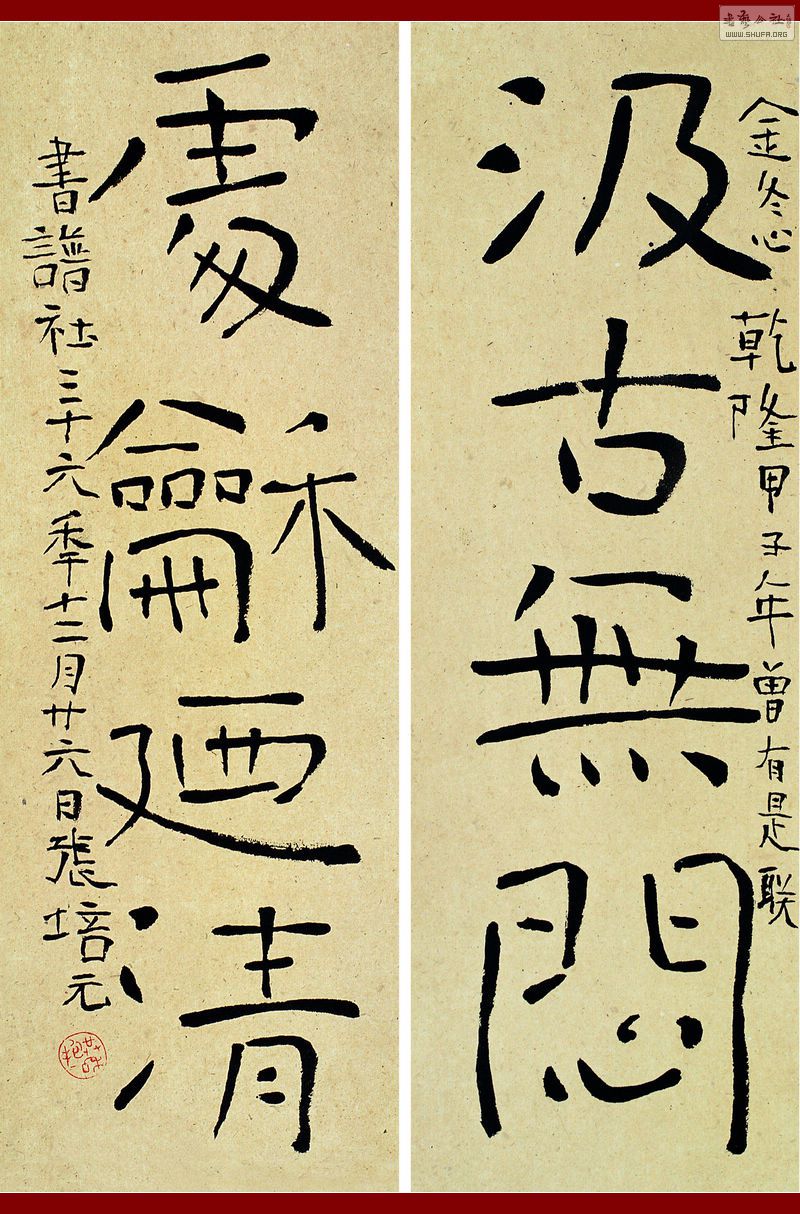 金冬心乾隆甲子年曾有是联
汲古無悶
處龢廼清
書譜社三十六年十二月廿六日張培元
書藝公社
WWW.SHUFA.ORG